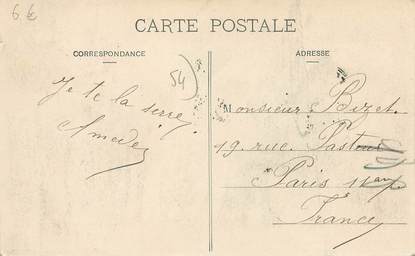 6 €
CARTE POSTALE
CORRESPONDANCE
ADRESSE
54
Je te la serre
Amedée
Monsieur Bizet
19. rue. Pasteur
Paris 11
France